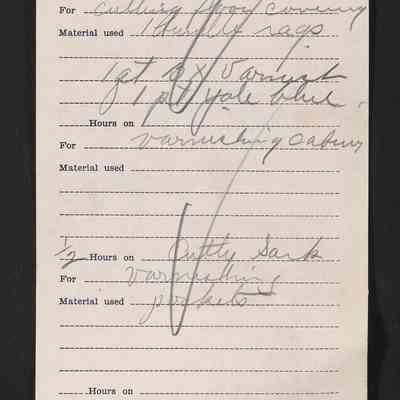 For cutting floor covering
Material used bundle rags
1 qt 9 X Varnish
1 pt yale blue
Hours on
For varnishing cabin
Material used
1/2 Hours on Cutty Sark
For varnishing
Material used pockets
Hours on